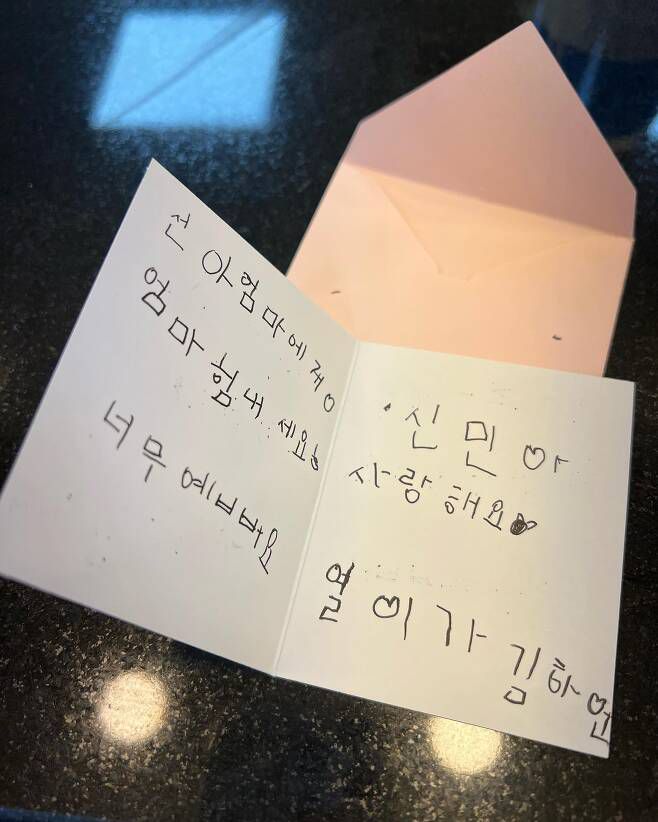 선 아엄마에게♡
엄마 힘내 세요
너무 예뻐요
신 민 아
사랑 해요♥
열 이가 김하언